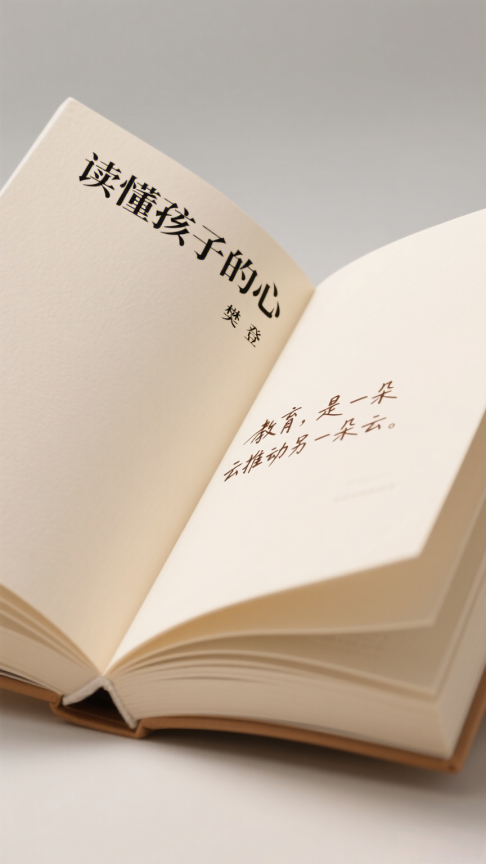 读懂孩子的心
樊登
教育，是一朵
云推动另一朵云。